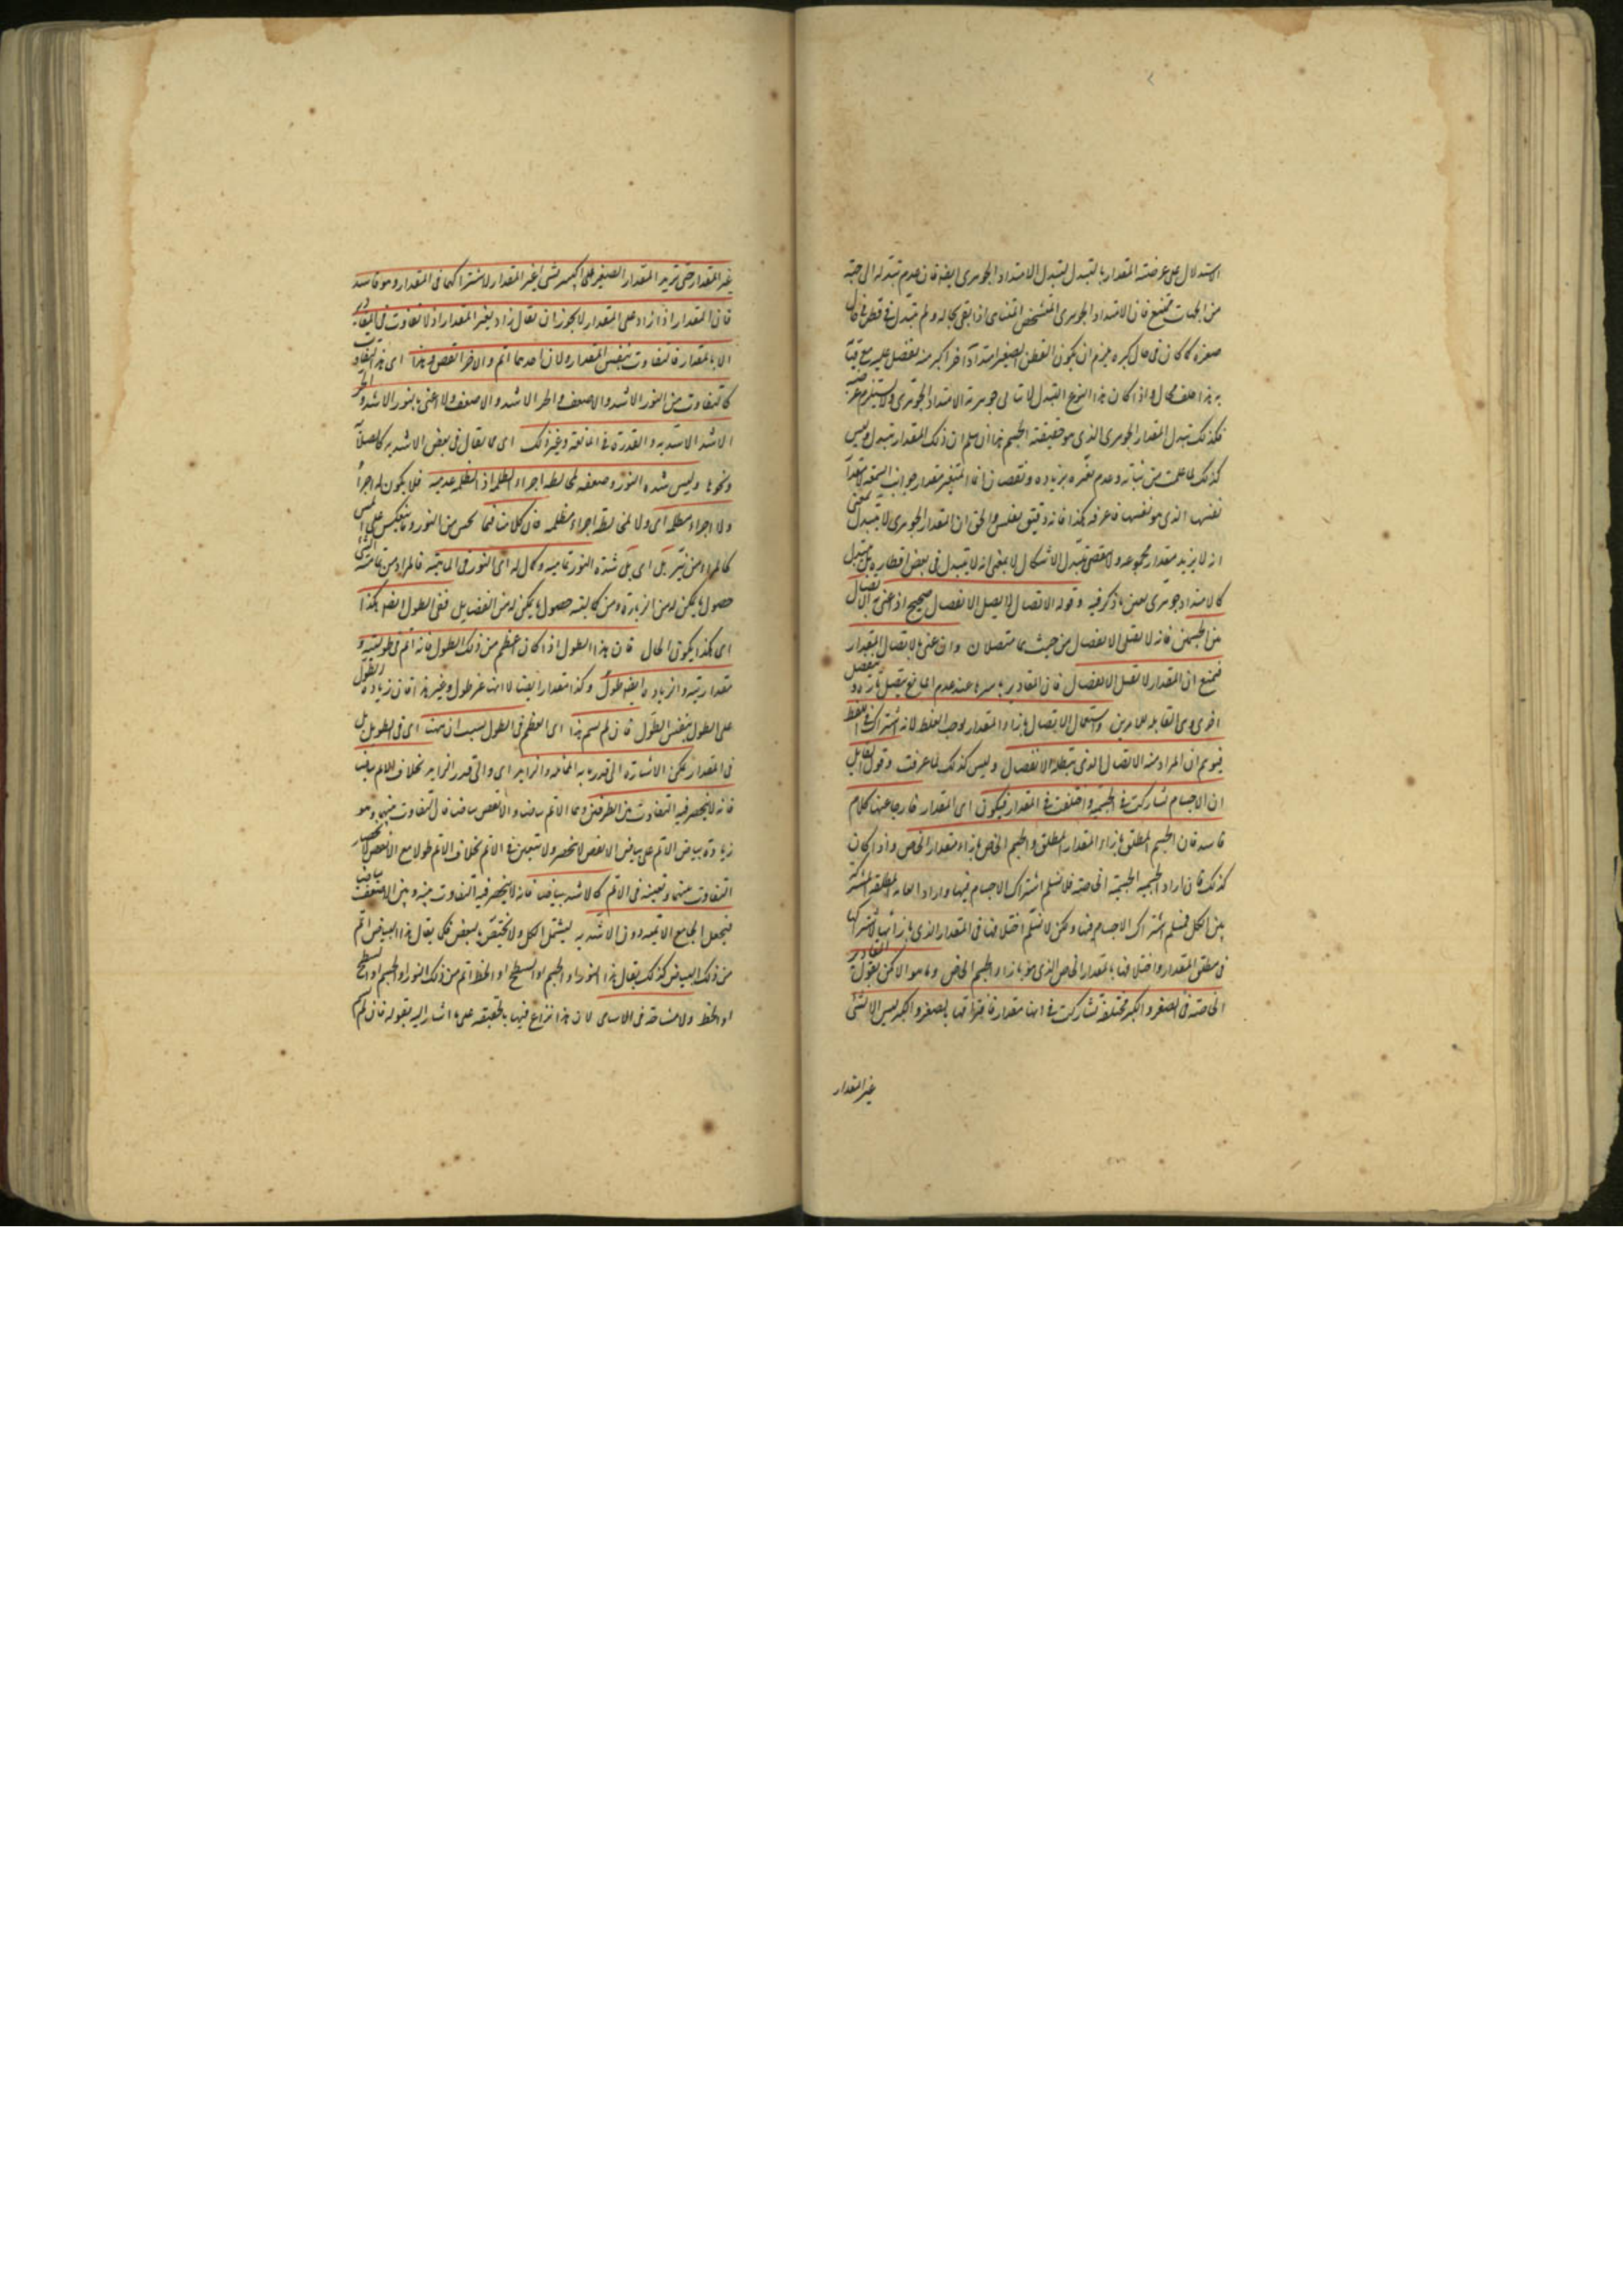 الاستدلال على عرضية المقدار بالتبدل لتبدل الامتداد الجوهرى ايضا فان عدم تبدله الى جهة
من الجهات ممتنع فان الامتداد الجوهرى المتشخص المتناهى اذا بقى بحاله ولم يتبدل فى قطر فى حال
صغره كما كان فى حال كبره فيلزم ان يكون القطر الصغير امتدادا آخر اكبر منه يفضل عليه مع
هذا خلف محال واذا كان هذا النوع التبدل لا ينافى جوهرية الامتداد الجوهرى ولا يستلزم
فكذلك تبدل المقدار الجوهرى الذى هو حقيقة الجسم هذا ان سلم ان ذلك المقدار يتبدل وليس
كذلك لما علمت من ثباته وعدم تغيره بزيادة ونقصان انما المتغير مقدار جوانب
نفسها الذى هو نفسها فاعرفه هكذا فانه دقيق نفيس والحق ان المقدار الجوهرى لا يتبدل بمعنى
انه لا يزيد مقدار مجموعه ولا ينقص بتبدل الاشكال لا بمعنى انه لا يتبدل فى بعض اقطاره بل يتبدل
كالامتداد جوهرى بعين ما ذكر فيه وقوله الاتصال لا يقبل الانفصال صحيح اذا عنى به الاتصال
بين الجسمين فانه لا يقبل الانفصال من حيث هما متصلان وان عنى بالاتصال المقدار
فيمنع ان المقدار لا يقبل الانفصال فان المقادير باسرها عند عدم المانع يتصل تارة وينفصل
اخرى وهى القابلة للامرين واستعمال الاتصال بازاء المقدار يوجب الغلط لانه اشتراك فى اللفظ
فيوهم ان المراد منه الاتصال الذى يبطله الانفصال وليس كذلك لما عرفت وقول القايل
ان الاجسام تشاركت فى الجسمية واختلفت فى المقدار فيكون اى المقدار خارجا عنها كلام
فاسد فان الجسم المطلق بازاء المقدار المطلق والجسم الخاص بازاء مقدار الخاص واذا كان
كذلك فان اراد بالجسمية الجسمية الخاصة فلا نسلم اشتراك الاجسام فيها وان اراد العامة المطلقة المشتركة
بين الكل فنسلم اشتراك الاجسام فيها ولكن لا نسلم اختلافها فى المقدار الذى بازائها لاشتراكها
فى مطلق المقدار واختلافها بالمقدار الخاص الذى هو بازاء الجسم الخاص وما هو الا كمن يقول المقادير
الخاصة فى الصغر والكبر مختلفة تشاركت فى انها مقدار فافتراقها بالصغر والكبر ليس الا لشئ
غير المقدار
غير المقدار حتى يزيد المقدار الصغير على الكبير بشئ غير المقدار لاشتراكهما فى المقدار وهو فاسد
فان المقدار اذا زاد على المقدار لا يجوز ان يقال زاد بغير المقدار اذ لا تفاوت فى المقادير
الا بالمقدار فالتفاوت بنفس المقدار ولان احدهما اتم والاخر انقص وهذا اى هذا التفاوت
كالتفاوت بين النور الاشد والاضعف والحر الاشد والاضعف ولا اعنى بالنور الاشد والحر
الاشد الاشدية والقدرة فى الممانعة وغير ذلك اى ما يقال فى بعض الاشدية كالصلابة
ونحوها وليس شدة النور وضعفه لمخالطة اجزاء الظلمة اذ الظلمة عدمية فلا يكون لها اجزاء
ولا اجزاء مظلمة اى ولا لمخالطة اجزاء مظلمة فان كلامنا فيما يحس من النور وما ينعكس على املس
كالمراة من نير بل اى بل شدة النور تمامية وكمال له اى للنور فى الماهية فالمراد من تمامية الشئ
حصول ما يمكن له من الزيادة ومن كماليته حصول ما يمكن له من الفضايل ففى الطول ايضا هكذا
اى هكذا يكون الحال فان هذا الطول اذا كان اعظم من ذلك الطول فانه اتم فى طوليته و
مقداريته والزيادة ايضا طول وكذا مقدار ايضا لا انها غير طول وغير هذا فان زيادة الطول
على الطول بنفس الطول فان لم يسم هذا اى العظم فى الطول بسبب ان هنا اى فى الطويل بل
فى المقدار يمكن الاشارة الى قدر ما به المماثلة والزايد اى والى قدر الزايد بخلاف الاتم بياضا
فانه لا ينحصر فيه التفاوت بين الطرفين وهما الاتم بياضا والانقص بياضا فان التفاوت بينهما وهو
زيادة بياض الاتم على بياض الانقص لا ينحصر ولا يتعين فى الاتم بخلاف الاتم طولا مع الانقص لانحصار
التفاوت بينهما وتعينه فى الاتم كالاشد بياضا فانه لا ينحصر فيه التفاوت بينه وبين الاضعف بياضا
فيجعل الجامع الاتمية دون الاشدية ليشمل الكل ولا يختص بالبعض فكما يقال هذا البياض اتم
من ذلك البياض كذلك يقال هذا النور او الجسم او السطح او الخط اتم من ذلك النور او الجسم او السطح
او الخط ولا مشاحة فى الاسامى لان هذا نزاع فيها بالحقيقة على ما اشار اليه بقوله فان لم